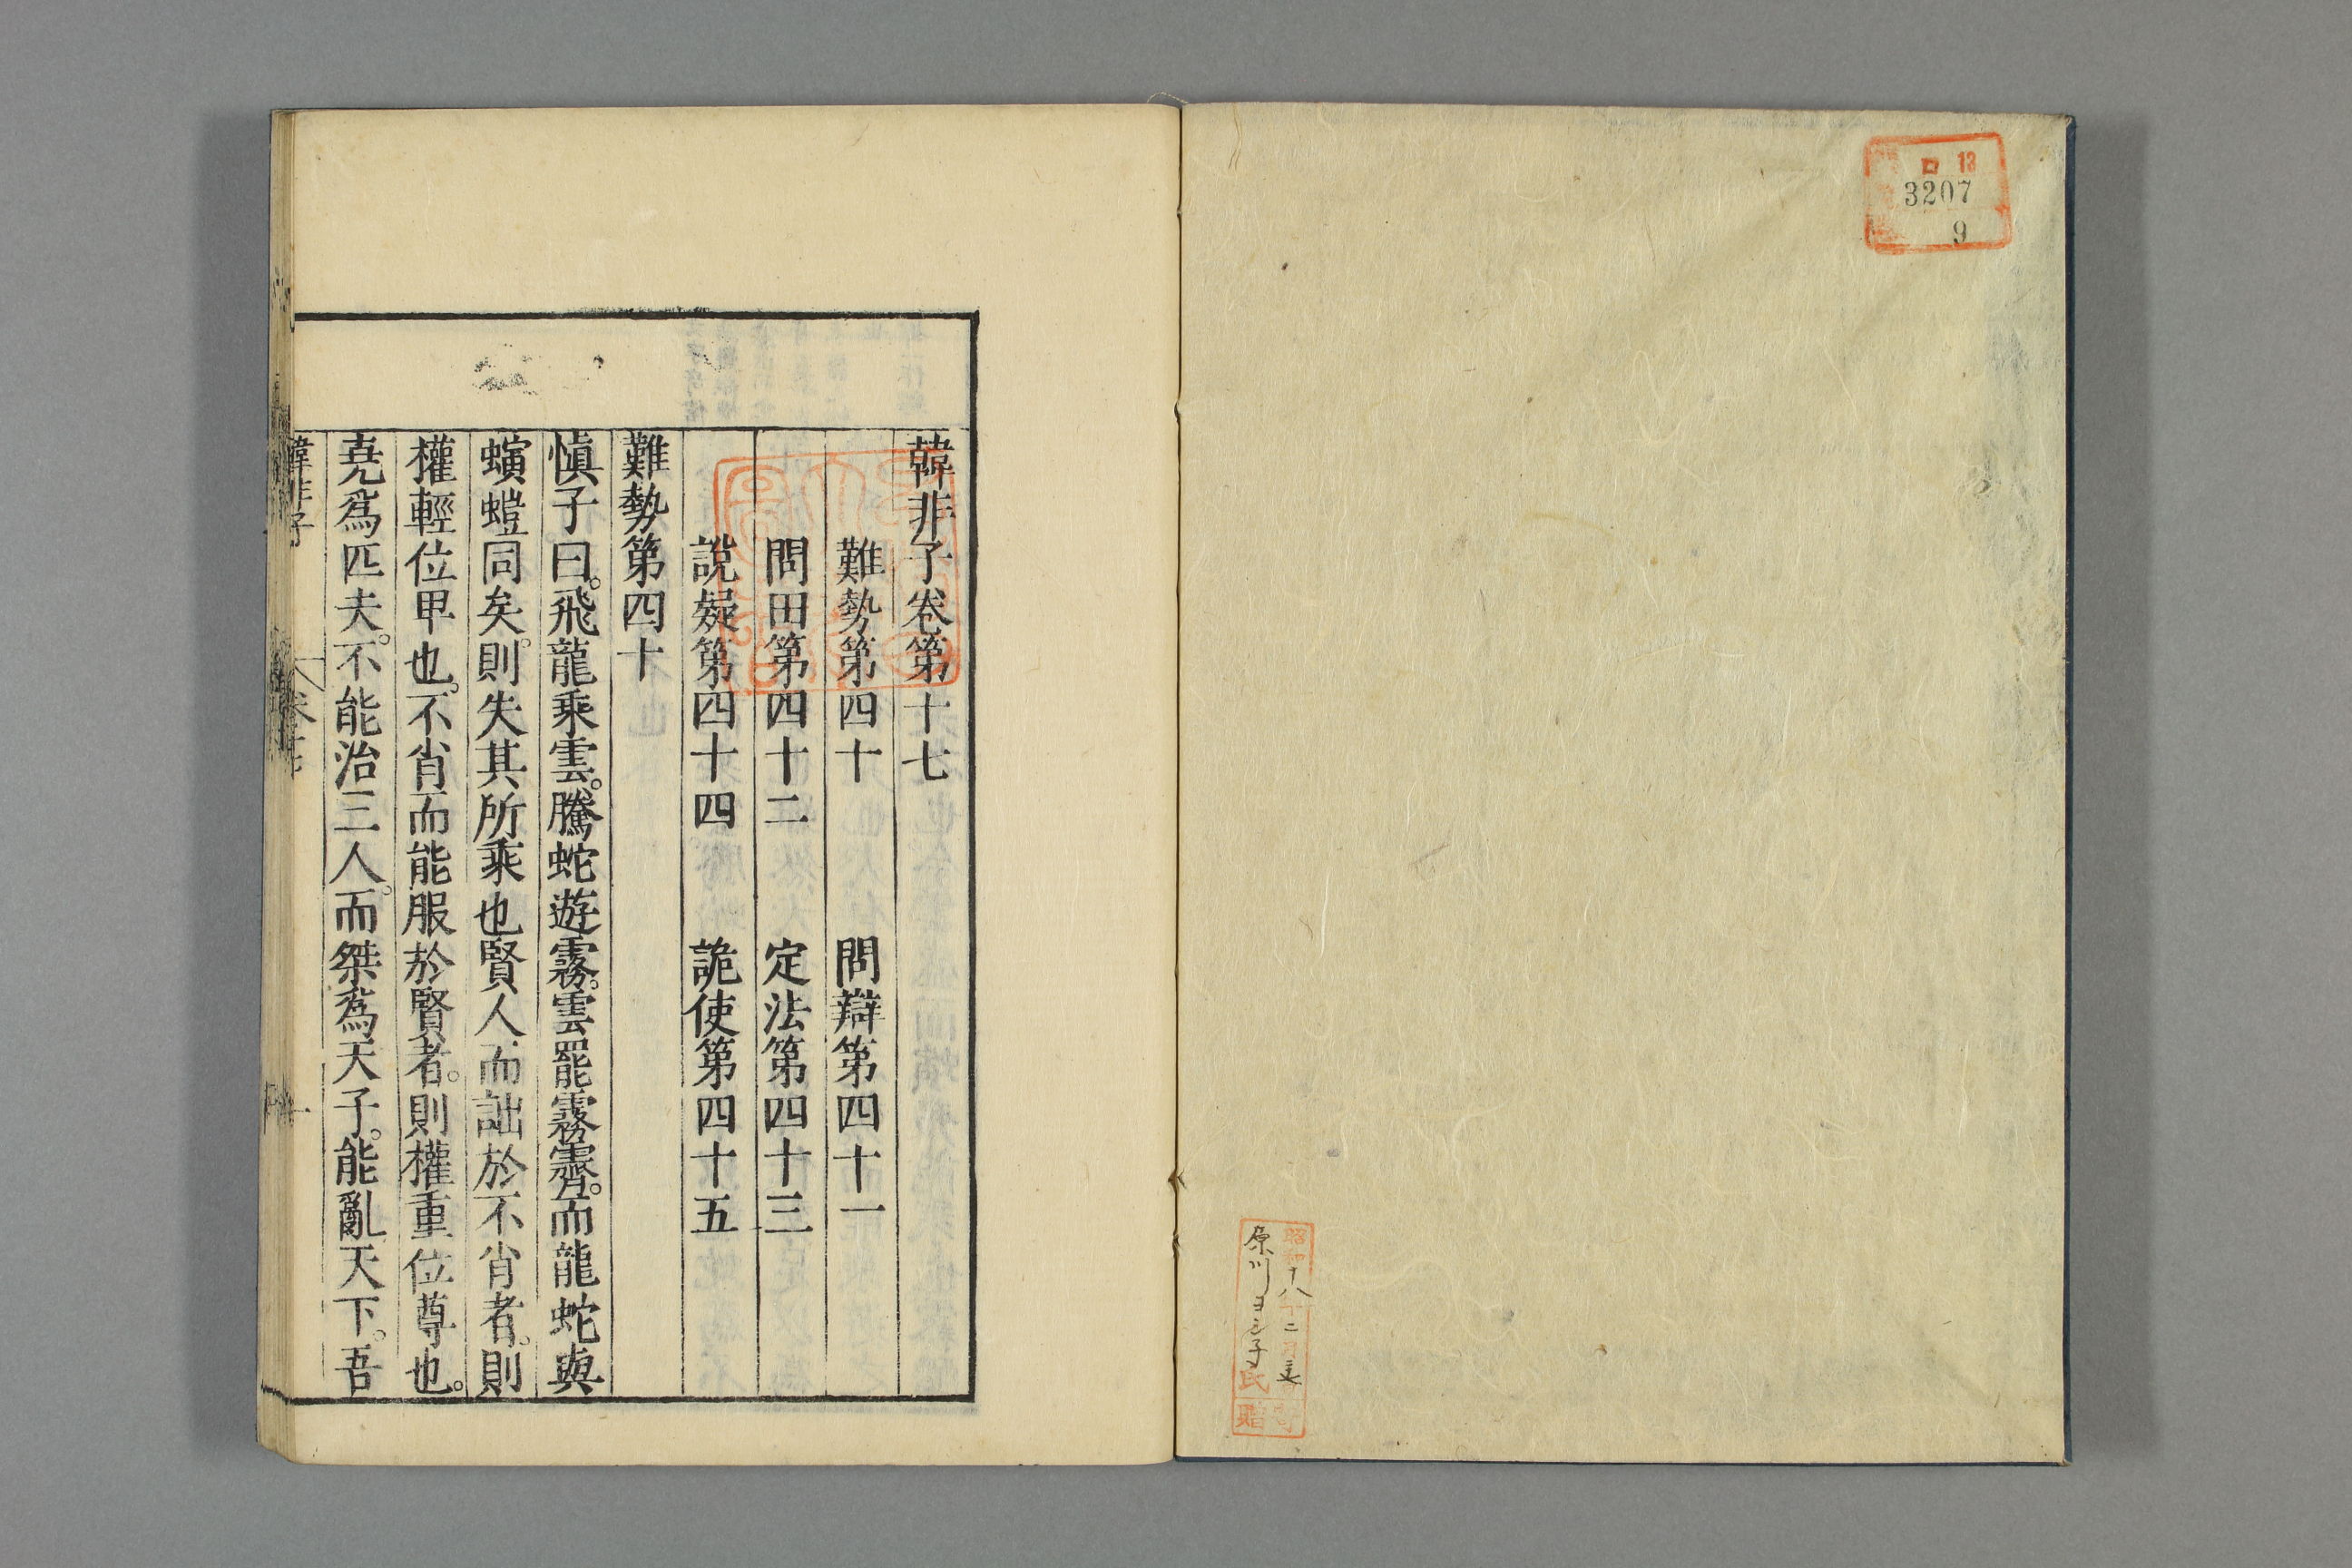 ロ 13
3207
9
昭和十八十二月
原川ヨシ子氏
贈
韓非子卷第十七
難勢第四十 問辯第四十一
問田第四十二 定法第四十三
說疑第四十四 詭使第四十五
難勢第四十
愼子曰。飛龍乘雲。騰蛇遊霧。雲罷霧霽。而龍蛇與
螾螘同矣。則失其所乘也賢人而詘於不肖者。則
權輕位卑也。不肖而能服於賢者。則權重位尊也。
堯爲匹夫。不能治三人。而桀爲天子。能亂天下。吾
韓非子 卷十七 一